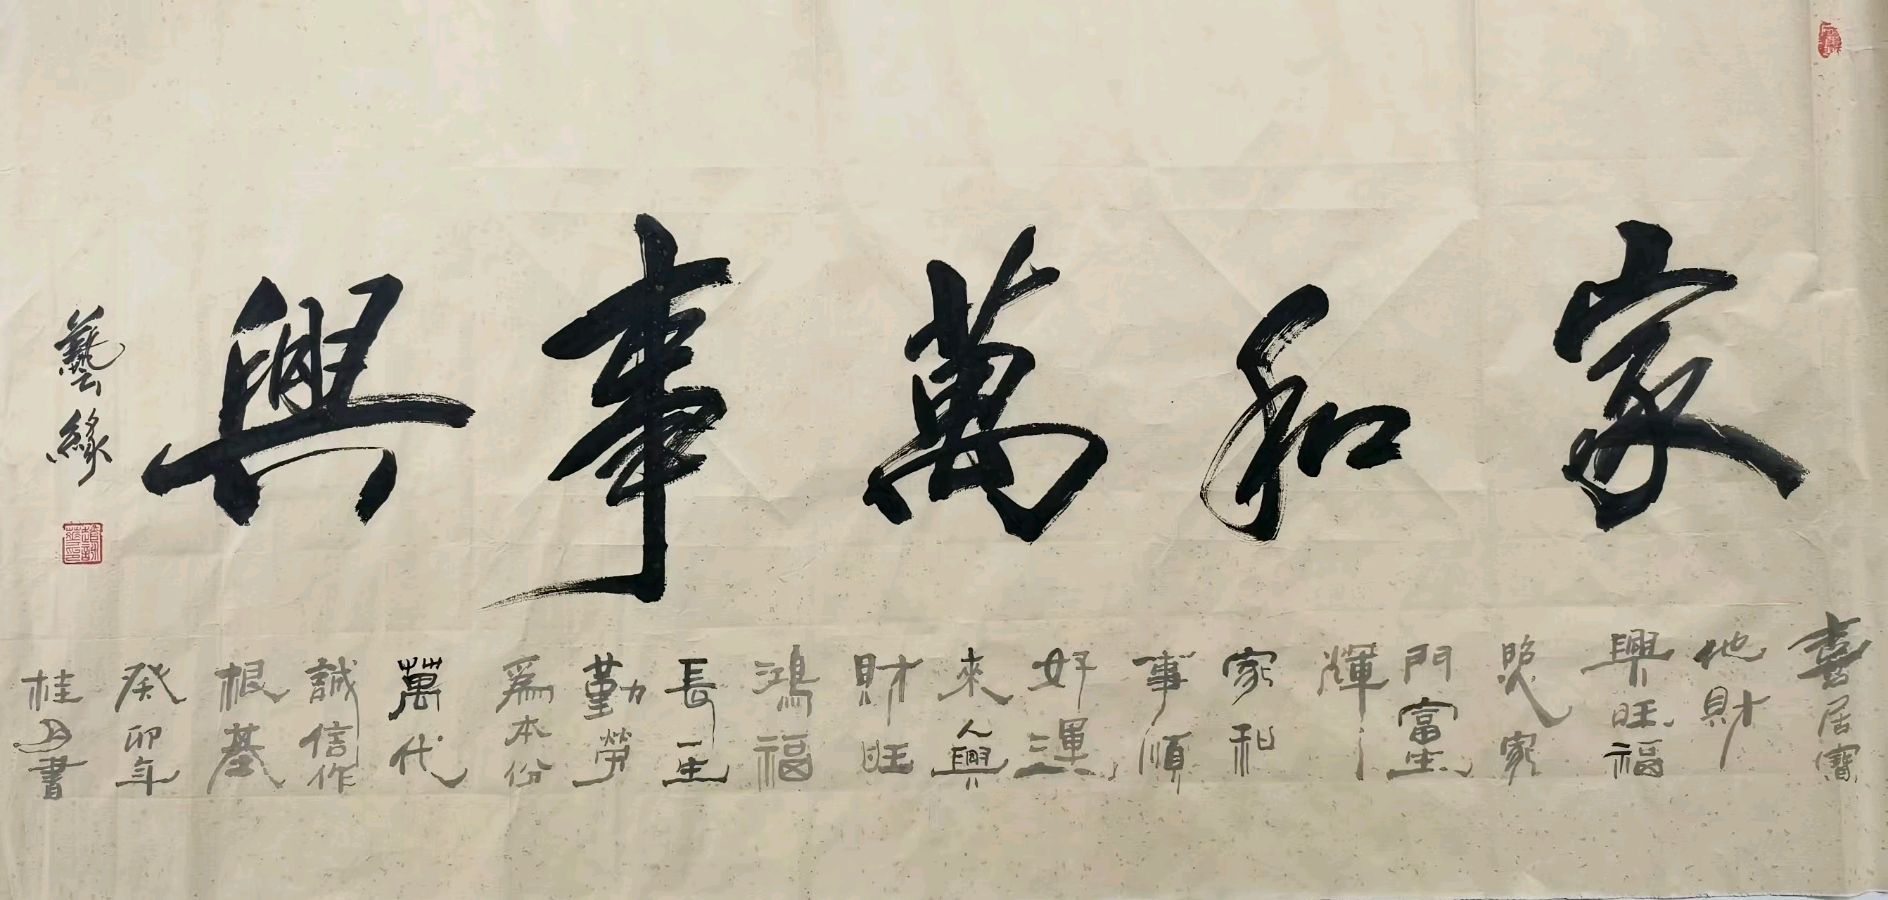 家和萬事興
藝緣
喜居寶
地財
興旺福
照家
門富生
輝
家和
事順
好運三
來人興
財旺
鴻福
長生
勤勞
為本份
萬代
誠信作
根基
癸卯年
桂月書